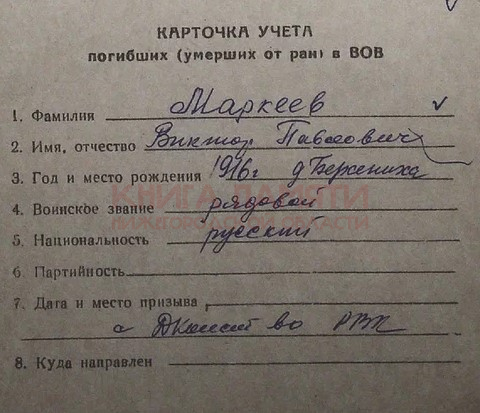 КАРТОЧКА УЧЕТА
погибших (умерших от ран) в ВОВ
1. Фамилия Маркеев
2. Имя, отчество Виктор Павлович
3. Год и место рождения 1916г д Берсениха
КНИГА ПАМЯТИ
4. Воинское звание рядовой
НИЖЕГОРОДСКОЙ ОБЛАСТИ
5. Национальность русский
6. Партийность
7. Дата и место призыва
РВК
8. Куда направлен